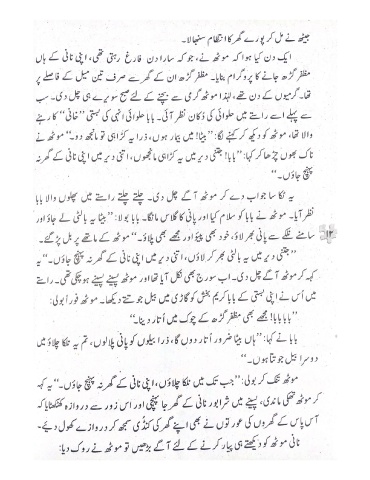 جیٹھ نے مل کر پورے گھر کا انتظام سنبھالا۔
ایک دن کیا ہوا کہ موٹھ نے، جو کہ سارا دن فارغ رہتی تھی، اپنی نانی کے ہاں
مظفر گڑھ جانے کا پروگرام بنایا۔ مظفر گڑھ ان کے گھر سے صرف تین میل کے فاصلے پر
تھا۔ گرمیوں کے دن تھے، لہٰذا موٹھ گرمی سے بچنے کے لئے صبح سویرے ہی چل دی۔ سب
سے پہلے اسے راستے میں حلوائی کی دُکان نظر آئی۔ بابا حلوائی انہی کی بستی ”خانی“ کا رہنے
والا تھا، موٹھ کو دیکھ کر کہنے لگا: ”بیٹا! میں بیمار ہوں، ذرا یہ کڑاہی تو مانجھ دو۔“ موٹھ نے
ناک بھوں چڑھا کر کہا: ”بابا! جتنی دیر میں یہ کڑاہی مانجھوں، اتنی دیر میں اپنی نانی کے گھر نہ
پہنچ جاؤں۔“
یہ ٹکا سا جواب دے کر موٹھ آگے چل دی۔ چلتے چلتے راستے میں پھلوں والا بابا
نظر آیا۔ موٹھ نے بابا کو سلام کیا اور پانی کا گلاس مانگا۔ بابا بولا: ”بیٹا یہ بالٹی لے جاؤ اور
سامنے نلکے سے پانی بھر لاؤ، خود بھی پیئو اور مجھے بھی پلاؤ۔“ موٹھ کے ماتھے پر بل پڑ گئے۔
”جتنی دیر میں یہ بالٹی بھر کر لاؤں، اتنی دیر میں اپنی نانی کے گھر نہ پہنچ جاؤں۔“ یہ
کہہ کر موٹھ آگے چل دی۔ اب سورج بھی نکل آیا تھا اور موٹھ پسینے پسینے ہو چکی تھی۔ راستے
میں اُس نے اپنی بستی کے بابا کریم بخش کو گاڑی میں بیل جوتتے دیکھا۔ موٹھ فوراً بولی:
”بابا بابا! مجھے بھی مظفر گڑھ کے چوک میں اُتار دینا۔“
بابا نے کہا: ”ہاں بیٹا ضرور اُتار دوں گا، ذرا بیلوں کو پانی پلا لوں، تم یہ نلکا چلاؤ میں
دوسرا بیل جوتتا ہوں۔“
موٹھ تنک کر بولی: ”جب تک میں نلکا چلاؤں، اپنی نانی کے گھر نہ پہنچ جاؤں۔“ یہ کہہ
کر موٹھ تھکی ماندی، پسینے میں شرابور نانی کے گھر جا پہنچی اور اس زور سے دروازہ کھٹکھٹایا کہ
آس پاس کے گھروں کی عورتوں نے بھی اپنے گھر کی کنڈی سمجھ کر دروازے کھول دیئے۔
نانی موٹھ کو دیکھتے ہی پیار کرنے کے لئے آگے بڑھیں تو موٹھ نے روک دیا: